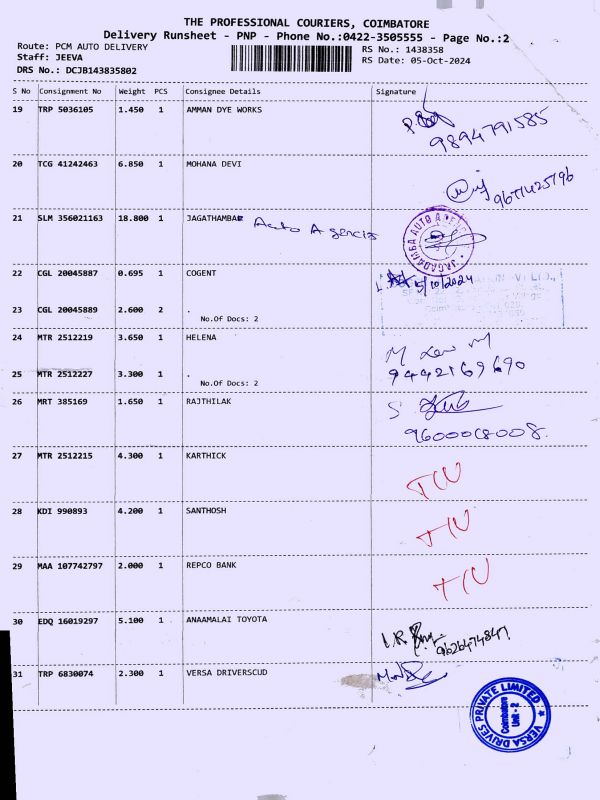 THE PROFESSIONAL COURIERS, COIMBATORE
Delivery Runsheet - PNP - Phone No.:0422-3505555 - Page No.:2
Route: PCM AUTO DELIVERY
RS No.: 1438358
Staff: JEEVA
RS Date: 05-Oct-2024
DRS No.: DCJB143835802
S No Consignment No Weight PCS Consignee Details Signature
19 TRP 5036105 1.450 1 AMMAN DYE WORKS
9894791585
20 TCG 41242463 6.850 1 MOHANA DEVI
9677425796
21 SLM 356021163 18.800 1 JAGATHAMBAE Auto Agencis
JAGADAMBA AUTO
22 CGL 20045887 0.695 1 COGENT
5/10/2024
23 CGL 20045889 2.600 2 .
No.Of Docs: 2
24 MTR 2512219 3.650 1 HELENA
9442169690
25 MTR 2512227 3.300 1 .
No.Of Docs: 2
26 MRT 385169 1.650 1 RAJTHILAK
S
27 MTR 2512215 4.300 1 KARTHICK
28 KDI 990893 4.200 1 SANTHOSH
29 MAA 107742797 2.000 1 REPCO BANK
30 EDQ 16019297 5.100 1 ANAAMALAI TOYOTA
31 TRP 6830074 2.300 1 VERSA DRIVERSCUD
VERSA DRIVES PRIVATE LIMITED
Coimbatore
Unit - 2